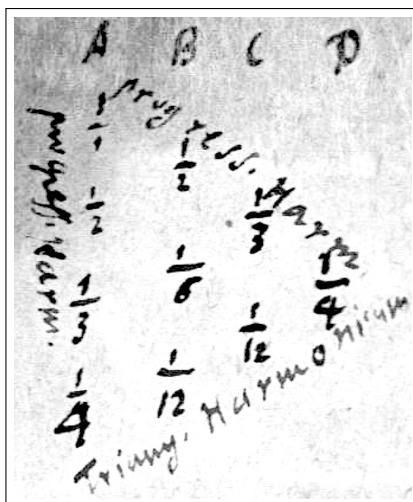 A B C D
progress. Harm
progress. Harm.
1/1
1/2 1/2
1/3 1/6 1/3
1/4 1/12 1/12 1/4
Triang. Harmonicum